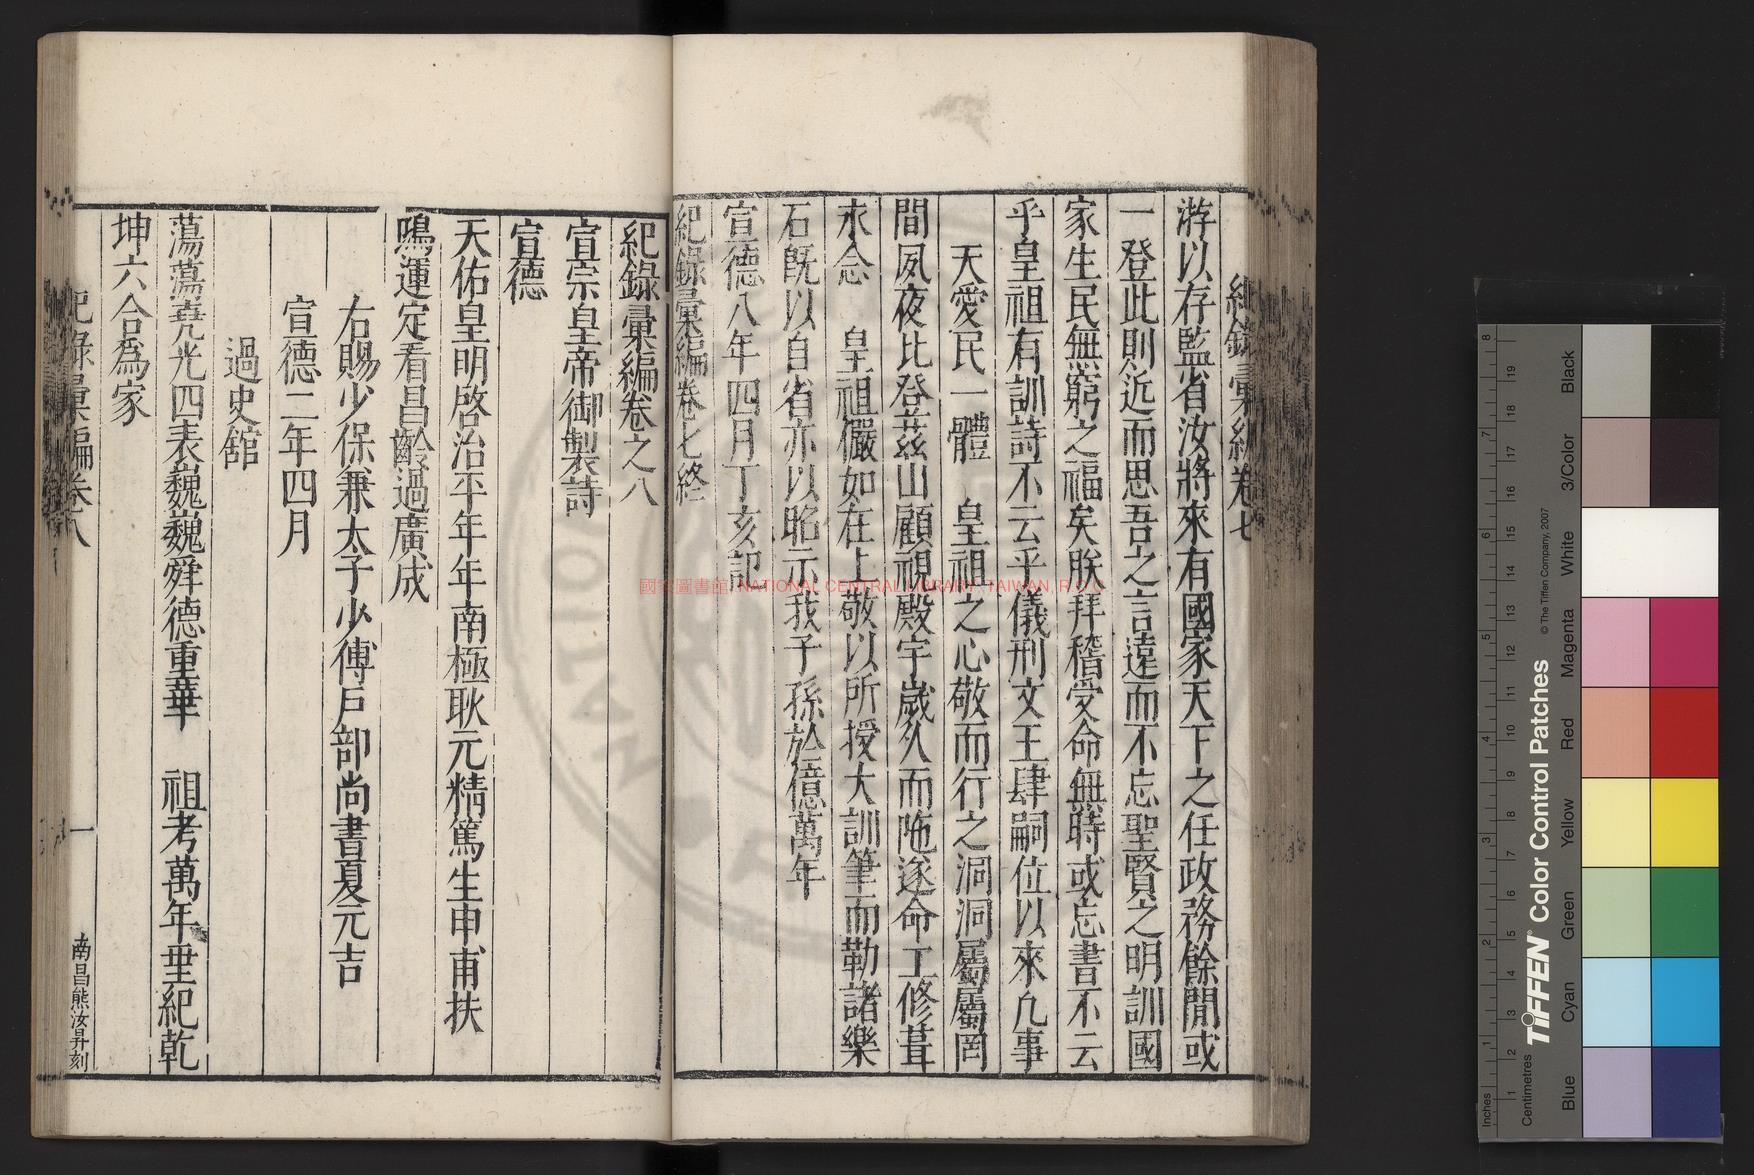 紀錄彙編卷七
游以存監省汝將來有國家天下之任政務餘閒或
一登此則近而思吾之言遠而不忘聖賢之明訓國
家生民無窮之福矣朕拜稽受命無時或忘書不云
乎皇祖有訓詩不云乎儀刑文王肆嗣位以來凡事
天愛民一體 皇祖之心敬而行之洞洞屬屬罔
間夙夜比登茲山顧視殿宇歲久而陁遂命工修葺
永念 皇祖儼如在上敬以所授大訓筆而勒諸樂
石旣以自省亦以昭示我子孫於億萬年
宣德八年四月丁亥記
紀錄彙編卷七終
紀錄彙編卷之八
宣宗皇帝御製詩
宣德
天佑皇明啓治平年年南極耿元精篤生申甫扶
鳴運定看昌齡過廣成
右賜少保兼太子少傅戶部尚書夏元吉
宣德二年四月
過史館
蕩蕩堯光四表巍巍舜德重華 祖考萬年垂紀乾
坤六合爲家
紀錄彙編卷八
一
南昌熊汝昇刻
國家圖書館 NATIONAL CENTRAL LIBRARY, TAIWAN, R.O.C
TIFFEN® Color Control Patches
© The Tiffen Company, 2007
Inches
Centimetres
Blue
Cyan
Green
Yellow
Red
Magenta
White
3/Color
Black